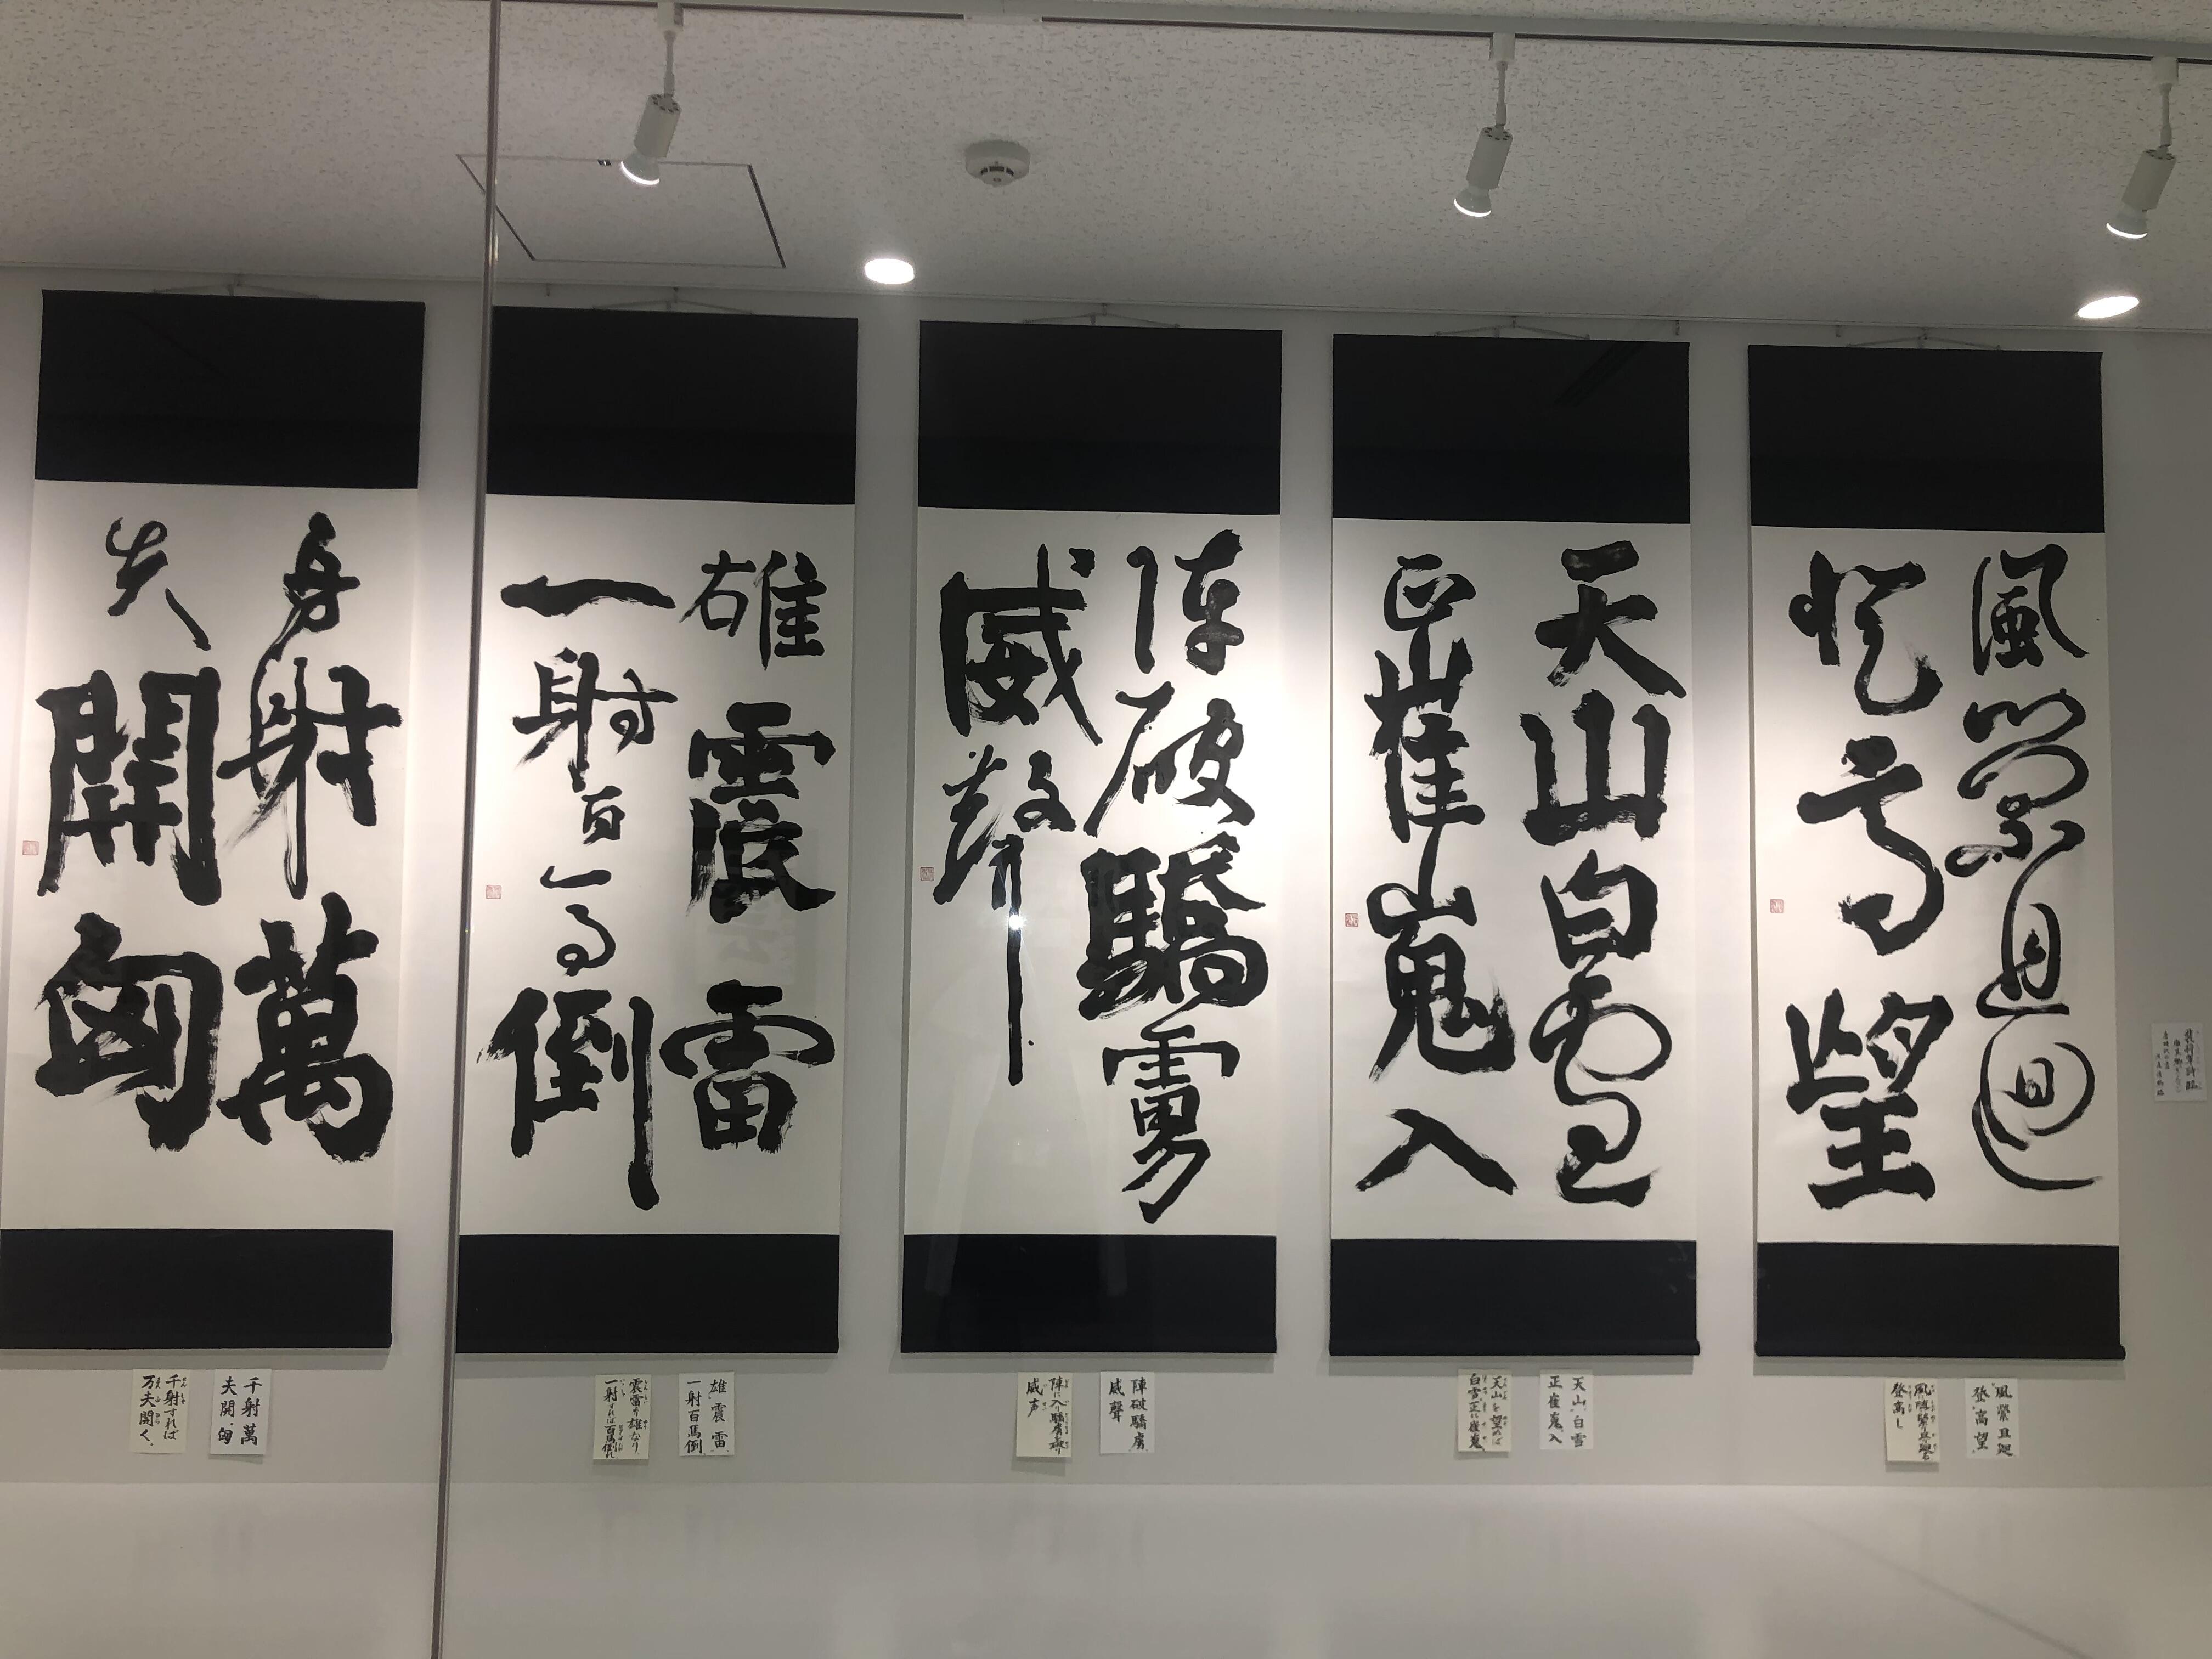 風縈且迴
登高望
天山白雪
正崔嵬入
陣破驕虜
威聲
雄震雷
一射百馬倒
再射萬
夫開匈
風縈且廻
登高望
登高し
天山白雪
正崔嵬入
天山を望めば
白雪正に崔嵬
陣破驕虜
威聲
陣に入り驕虜を破り
威声
雄震雷
一射百馬倒
震雷より雄なり
一射すれば百馬倒れ
千射萬
夫開匈
千射すれば
万夫開く。